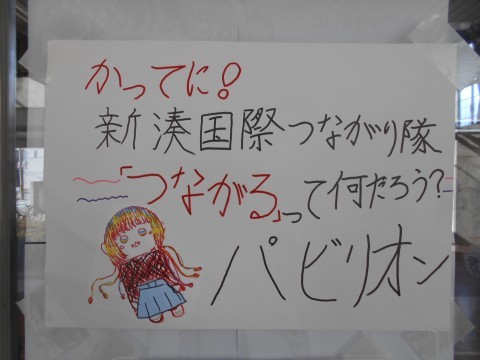 かってに!
新湊国際つながり隊
「つながる」って何だろう?
パビリオン